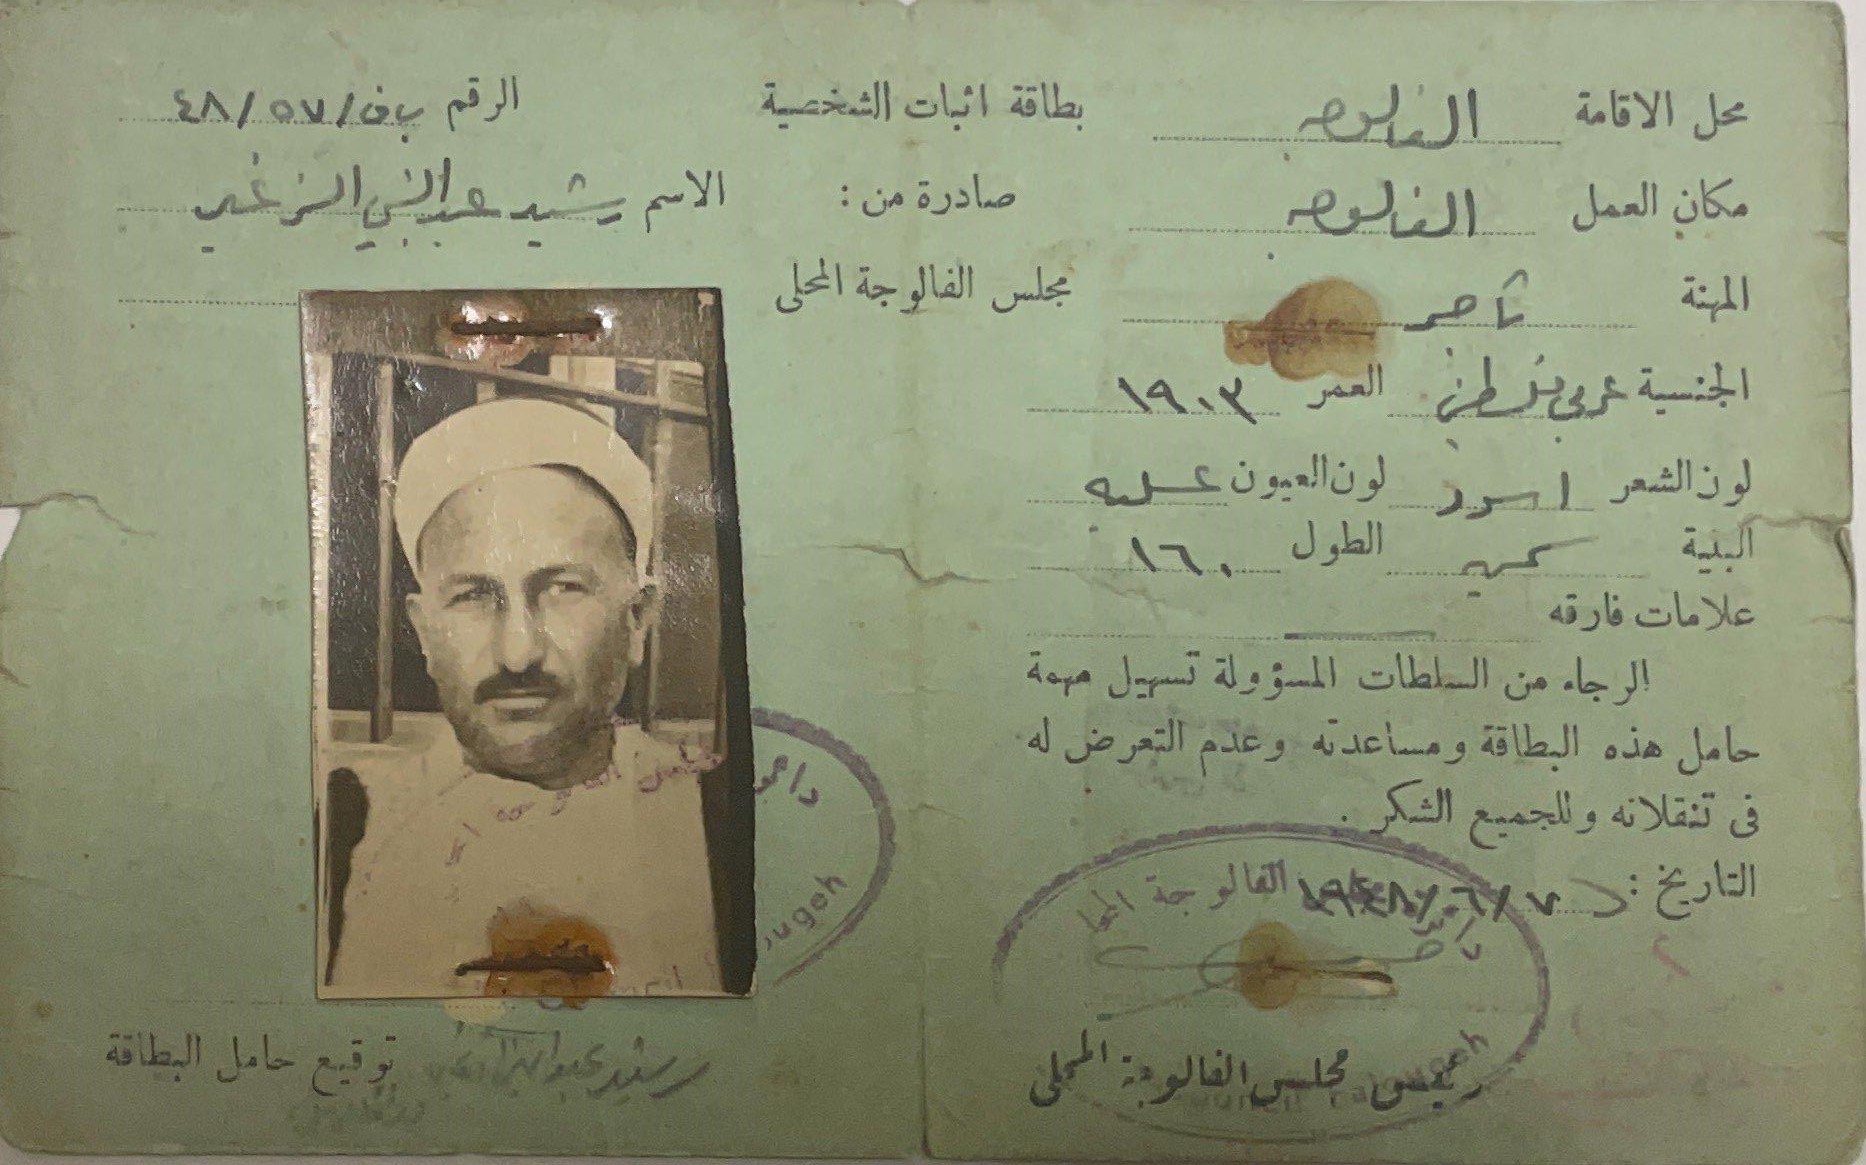 محل الاقامة الفالوجه
مكان العمل الفالوجه
المهنة تاجر
الجنسية عربي فلسطيني العمر ١٩٠٣
لون الشعر اسود لون العيون عسليه
البنية الطول ١٦٠
علامات فارقه
الرجاء من السلطات المسؤولة تسهيل مهمة
حامل هذه البطاقة ومساعدته وعدم التعرض له
فى تنقلاته وللجميع الشكر .
التاريخ : ٧/٦/١٩٤٨
رئيس مجلس الفالوجة المحلى
بطاقة اثبات الشخصية
صادرة من :
مجلس الفالوجة المحلى
الرقم ب ف/٥٧/٤٨
الاسم رشيد عبد النبي
توقيع حامل البطاقة رشيد عبد النبي